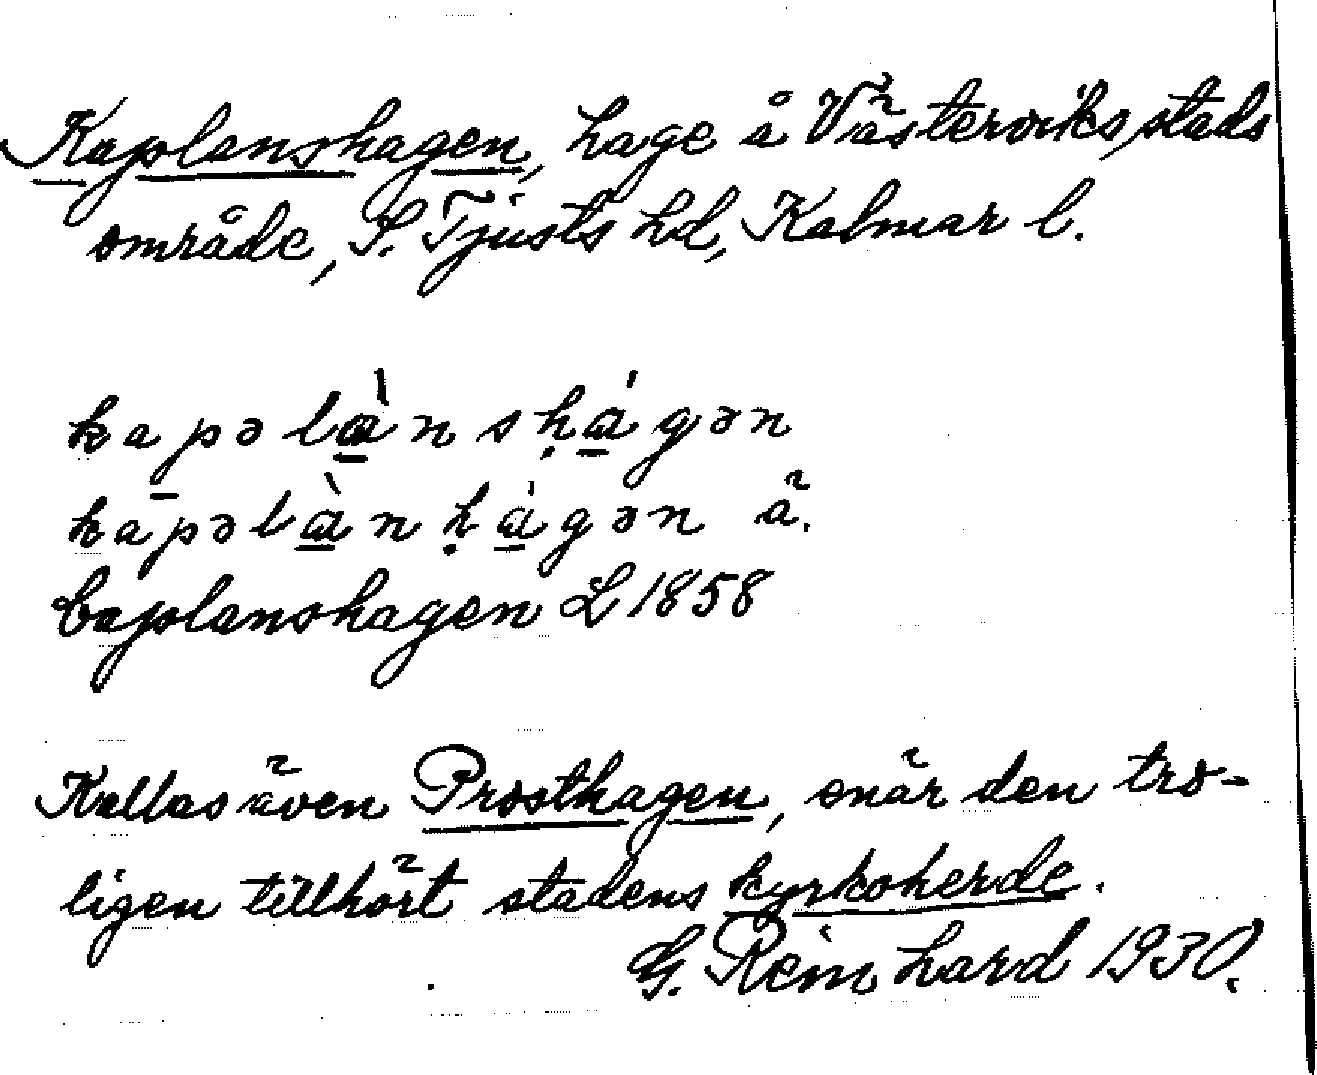 Kaplanshagen, hage å Västerviks stads
område, S. Tjusts hd, Kalmar l.
kapəlànsḥágən
kapəlànḥágən ä.
Caplanshagen L 1858
Kallas även Prosthagen, enär den tro-
ligen tillhört stadens kyrkoherde.
G. Reinhard 1930.